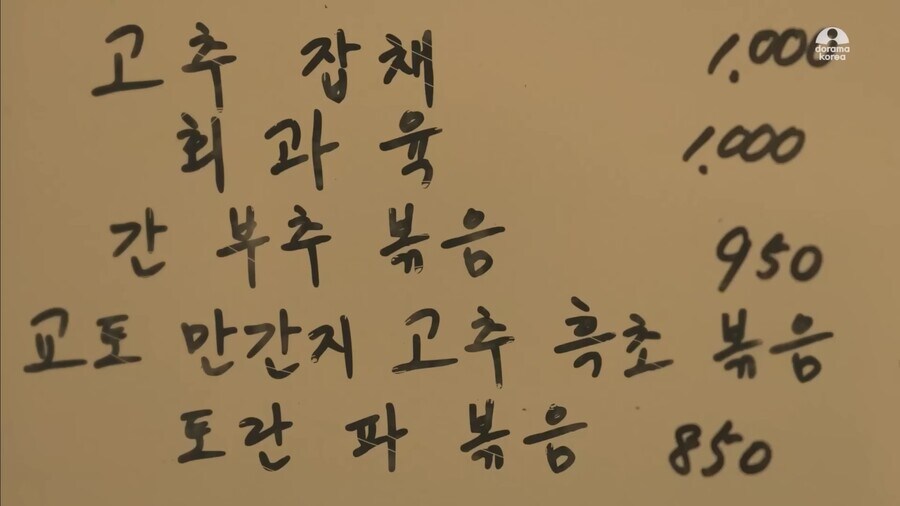 고추 잡채 1,000
dorama korea
회과육 1,000
간 부추 볶음 950
교토 만간지 고추 흑초 볶음
토란 파 볶음 850